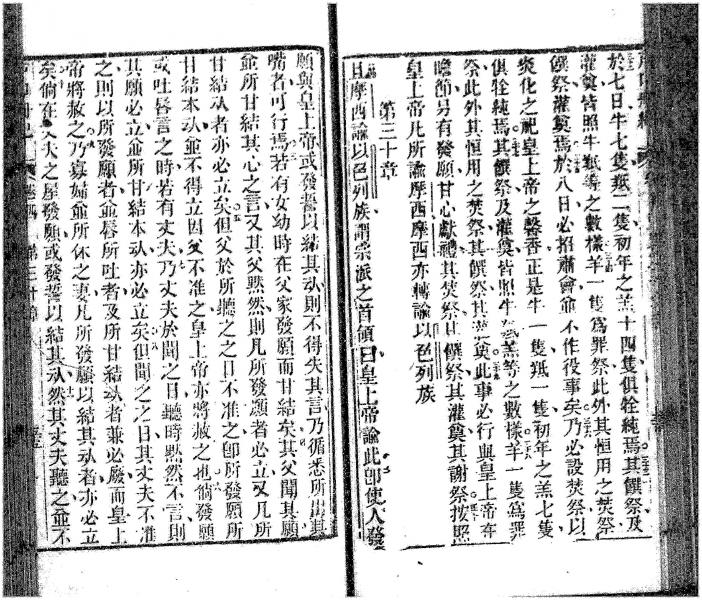 於七日牛七隻羝二隻初年之羔十四隻俱牷純焉其饌祭及
灌奠皆照牛羝等之數樣羊一隻爲罪祭此外其恒用之焚祭
饌祭灌奠焉於八日必招肅會爾不作役事矣乃必設焚祭以
炎化之祀皇上帝之馨香正是牛一隻羝一隻初年之羔七隻
俱牷純焉其饌祭及灌奠皆照牛羝羔等之數樣羊一隻爲罪
祭此外其恒用之焚祭其饌祭其灌奠此事必行與皇上帝在
瞻節另有發願甘心獻禮其焚祭饌祭其灌奠其謝祭按照
皇上帝凡所諭摩西摩西亦轉諭以色列族
第三十章
且摩西諭以色列族諸宗派之首領曰皇上帝諭此卽使人發
願與皇上帝或發誓以結其 則不得失其言乃循悉所出其
嘴者可行焉若有女幼時在父家發願而甘結矣其父聞其願
並所甘結其心之言又其父黙然則凡所發願者必立又凡所
甘結 者亦必立矣但父於所聽之之日不准之卽所發願所
甘結本 並不得立因父不准之皇上帝亦將赦之也倘發願
或吐唇言之時若有丈夫乃丈夫於聞之日聽時黙然不言則
其願必立並所甘結本 亦必立矣但聞之之日其丈夫不准
之則以所發願者並唇所吐者及所甘結 者兼必廢而皇上
帝將赦之乃寡婦並所休之妻凡所發願以結其 者亦必立
矣倘在丈夫之屋發願或發誓以結其 然其丈夫聽之並不
第三十